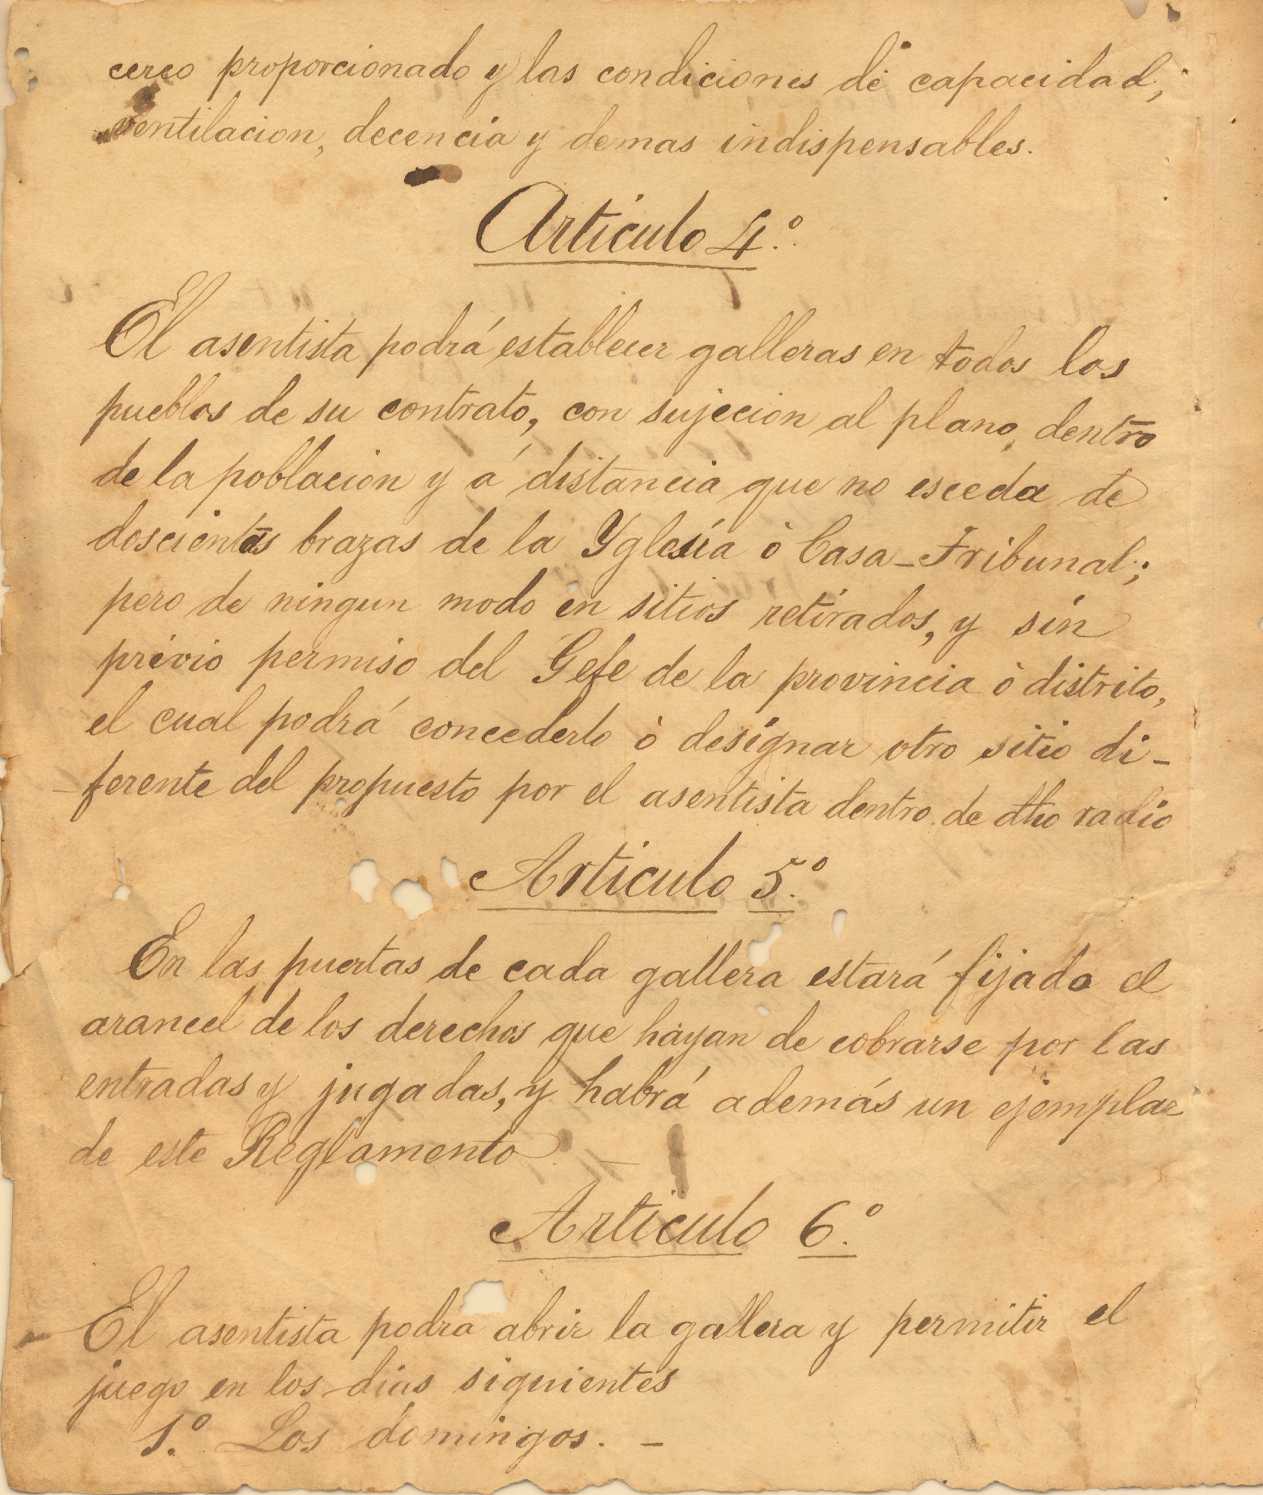 cerco proporcionado y las condiciones de capacidad,
ventilacion, decencia y demas indispensables.
Articulo 4.º
El asentista podrá establecer galleras en todos los
pueblos de su contrato, con sujecion al plano, dentro
de la poblacion y á distancia que no esceda de
doscientas brazas de la Yglesia ò Casa-Tribunal;
pero de ningun modo en sitios retirados, y sin
prévio permiso del Gefe de la provincia ò distrito,
el cual podrá concederlo ò designar otro sitio di-
ferente del propuesto por el asentista dentro de dho radio
Articulo 5.º
En las puertas de cada gallera estará fijado el
arancel de los derechos que hayan de cobrarse por las
entradas y jugadas, y habrá además un ejemplar
de este Reglamento. —
Articulo 6.º
El asentista podrá abrir la gallera y permitir el
juego en los dias siguientes
1.º Los domingos. —